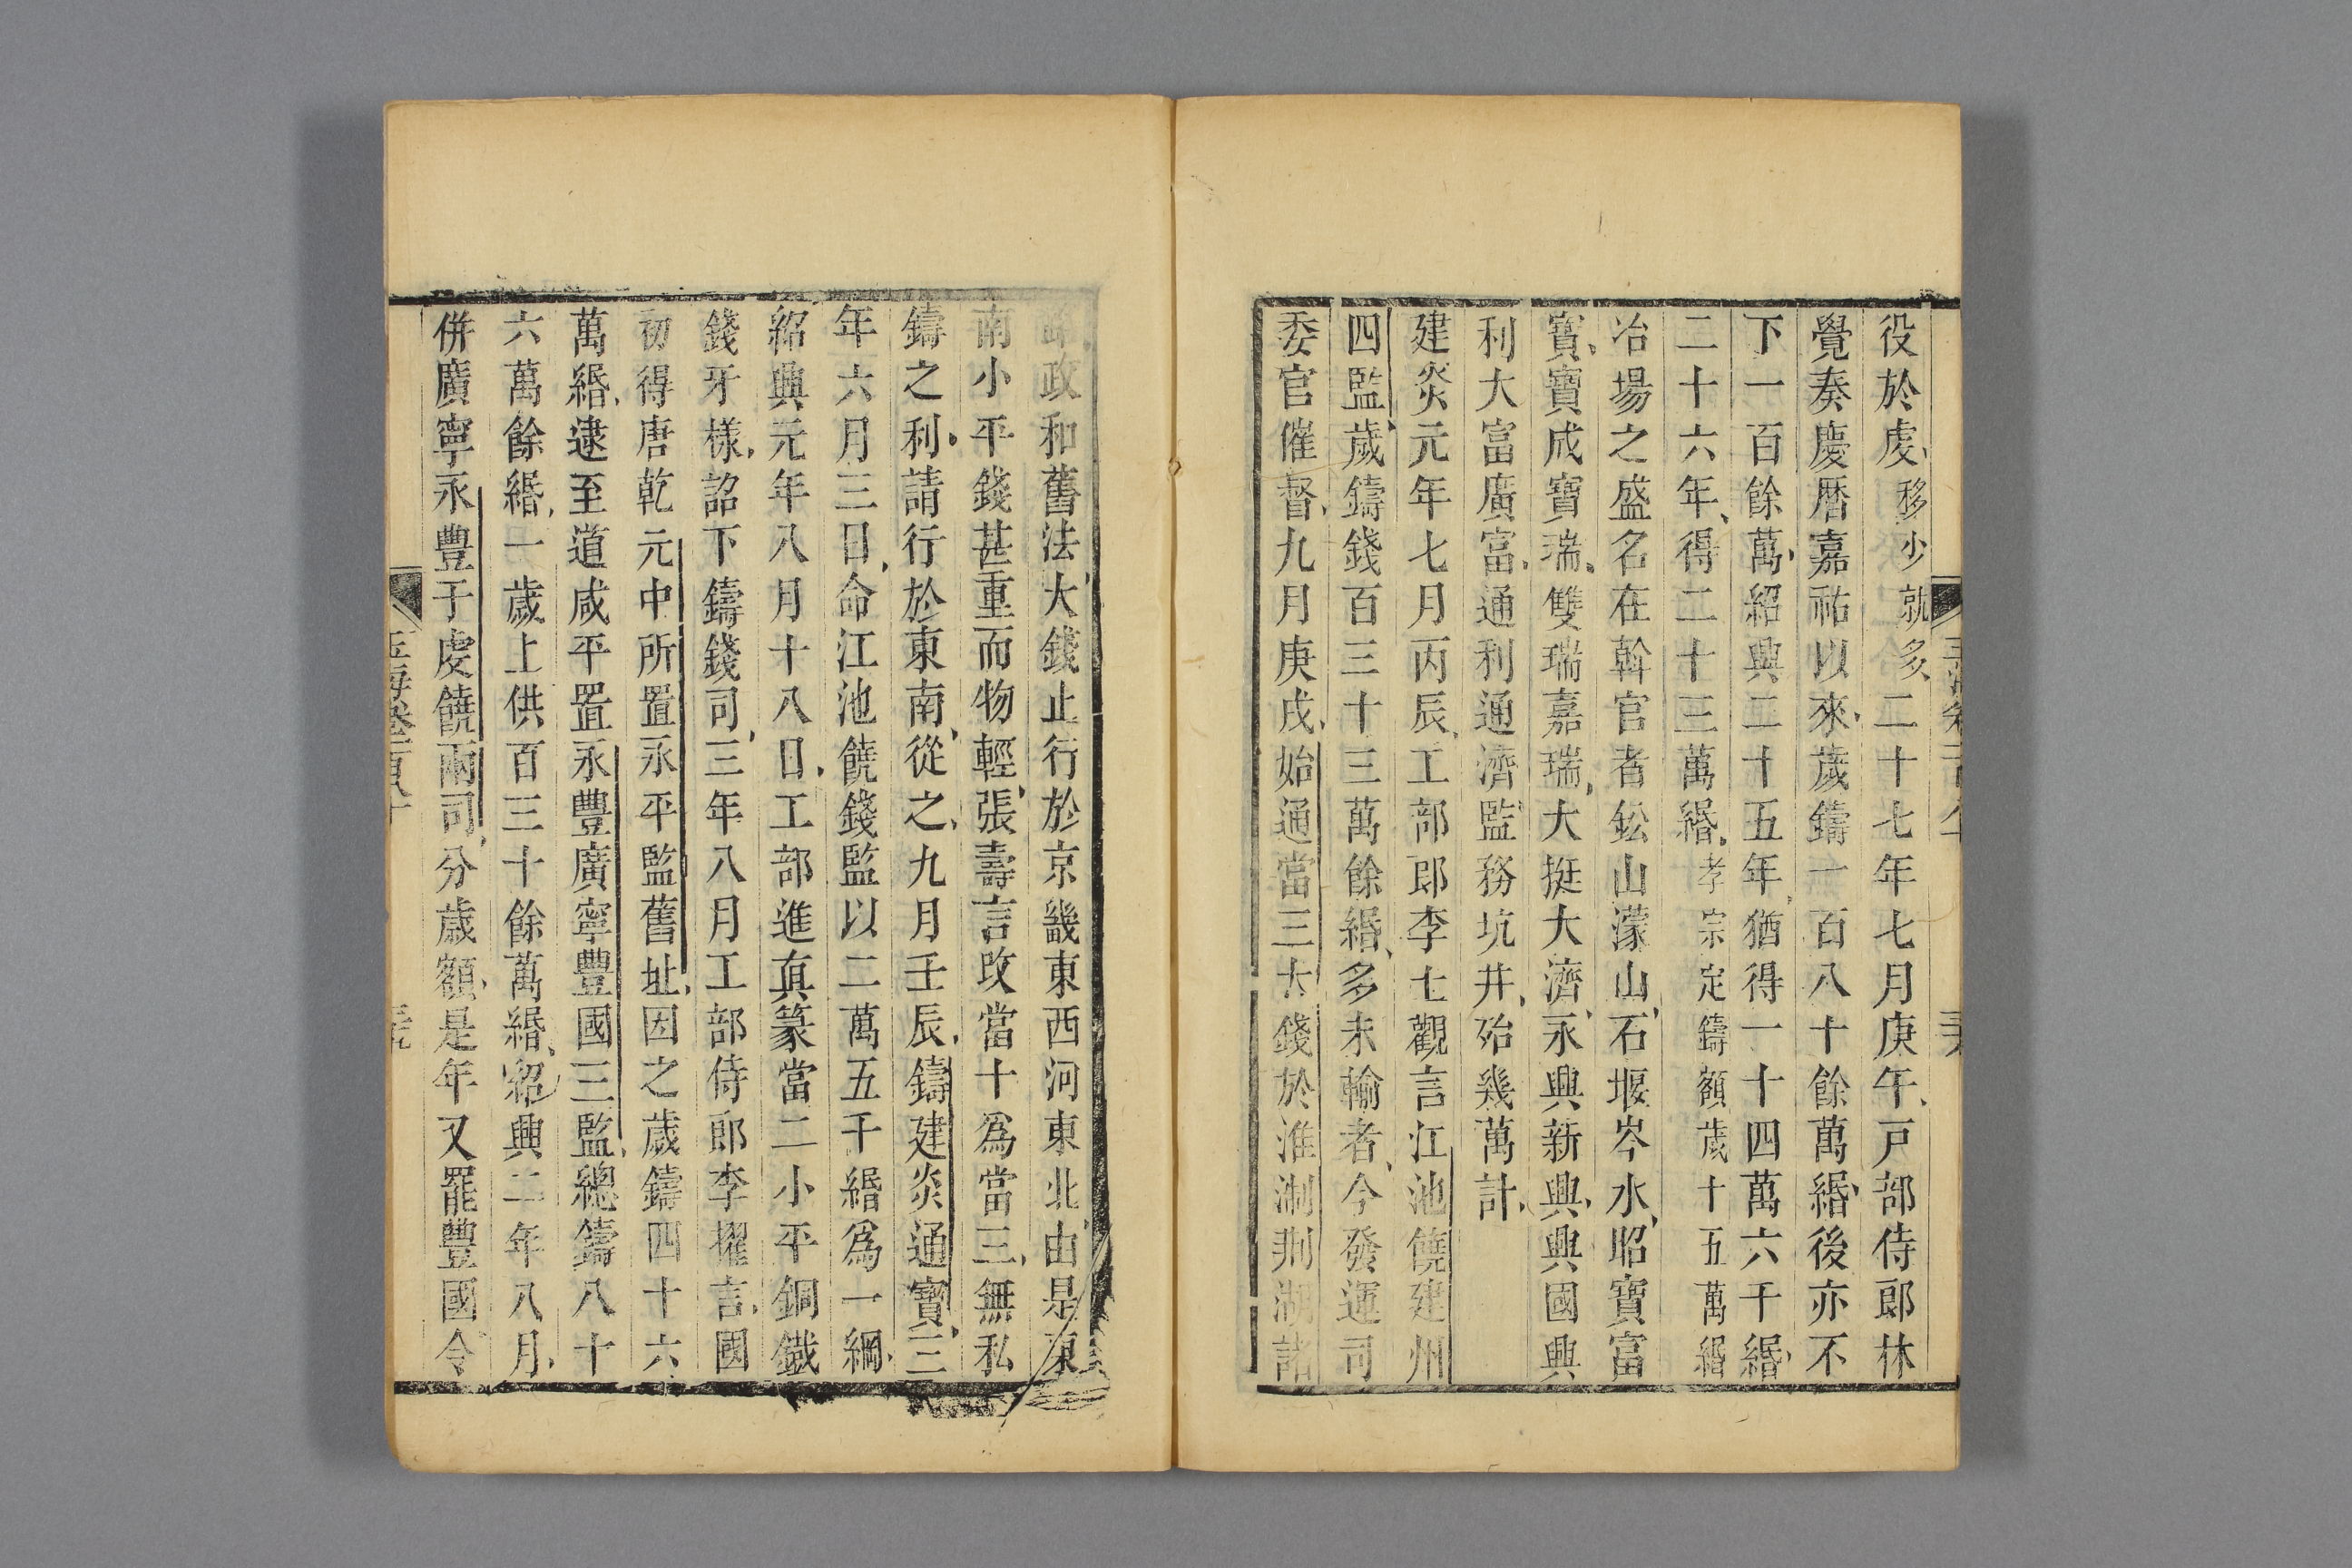 役於虔移少就多二十七年七月庚午戸部侍郎林
覺奏慶曆嘉祐以來歲鑄一百八十餘萬緡後亦不
下一百餘萬紹興二十五年猶得一十四萬六千緡
二十六年得二十三萬緡孝宗定鑄額歲十五萬緡
冶場之盛名在斡官者鈆山濛山石堰岑水昭寶富
寶寶成寶瑞雙瑞嘉瑞大挺大濟永興新興興國興
利大富廣富通利通濟監務坑井殆幾萬計
建炎元年七月丙辰工部郎李士觀言江池饒建州
四監歲鑄錢百三十三萬餘緡多未輸者令發運司
委官催督九月庚戌始通當三大錢於淮浙荆湖諸
路政和舊法大錢止行於京畿東西河東北由是東
南小平錢甚重而物輕張壽言改當十爲當三無私
鑄之利請行於東南從之九月壬辰鑄建炎通寳三
年六月三日命江池饒錢監以二萬五千緡爲一綱
紹興元年八月十八日工部進真篆當二小平銅鐵
錢牙樣詔下鑄錢司三年八月工部侍郎李擢言國
初得唐乾元中所置永平監舊址因之歲鑄四十六
萬緡逮至道咸平置永豐廣寧豐國三監總鑄八十
六萬餘緡一歲上供百三十餘萬緡紹興二年八月
併廣寧永豐于虔饒兩司分歲額是年又罷豐國令
玉海卷一百八十